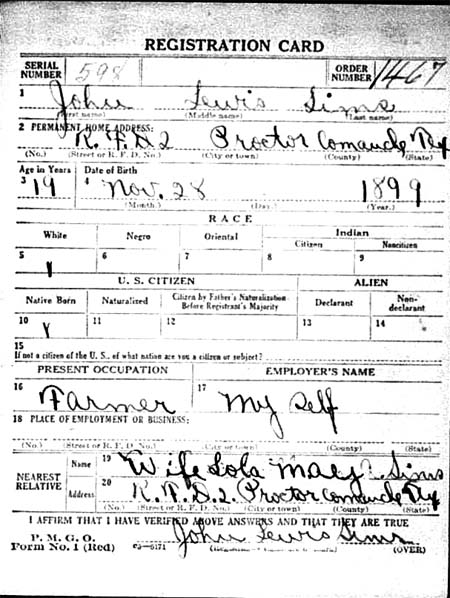 REGISTRATION CARD
SERIAL NUMBER 598 ORDER NUMBER 1467
1 John Lewis Sims
(First name) (Middle name) (Last name)
2 PERMANENT HOME ADDRESS:
R. F. D. 2 Proctor Comanche Tex
(No.) (Street or R. F. D. No.) (City or town) (County) (State)
Age in Years Date of Birth
3 19 4 Nov. 28 1899
(Month.) (Day.) (Year.)
RACE
White Negro Oriental Indian
Citizen Noncitizen
5 6 7 8 9
U. S. CITIZEN ALIEN
Native Born Naturalized Citizen by Father's Naturalization Before Registrant's Majority Declarant Non-declarant
10 11 12 13 14
15
If not a citizen of the U. S., of what nation are you a citizen or subject?
PRESENT OCCUPATION EMPLOYER'S NAME
16 Farmer 17 My Self
18 PLACE OF EMPLOYMENT OR BUSINESS:
(No.) (Street or R. F. D. No.) (City or town) (County) (State)
NEAREST RELATIVE Name 19 Wife Lola Sims
Address 20 R. F. D. 2. Proctor Comanche Tex
(No.) (Street or R. F. D. No.) (City or town) (County) (State)
I AFFIRM THAT I HAVE VERIFIED ABOVE ANSWERS AND THAT THEY ARE TRUE
P. M. G. O.
Form No. 1 (Red) John Lewis Sims (OVER)